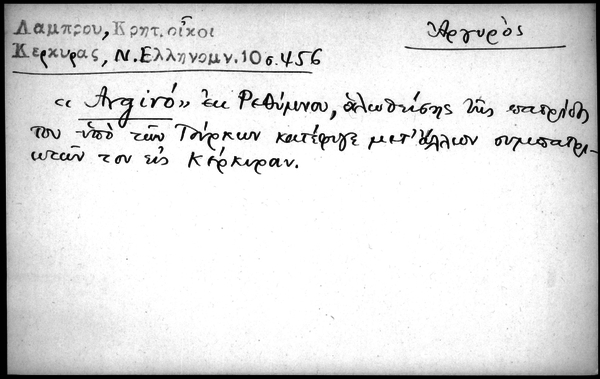 Λαμπρου, Κρητ. οἶκοι
Κερκυρας, Ν. Ελληνομν. 10 σ. 456
Ἀργυρὸς
«Argirό» ἐκ Ρεθύμνου, ἁλωθείσης τῆς πατρίδος
του ὑπὸ τῶν Τούρκων κατέφυγε μετ' ἄλλων συμπατρι-
ωτῶν του εἰς Κέρκυραν.